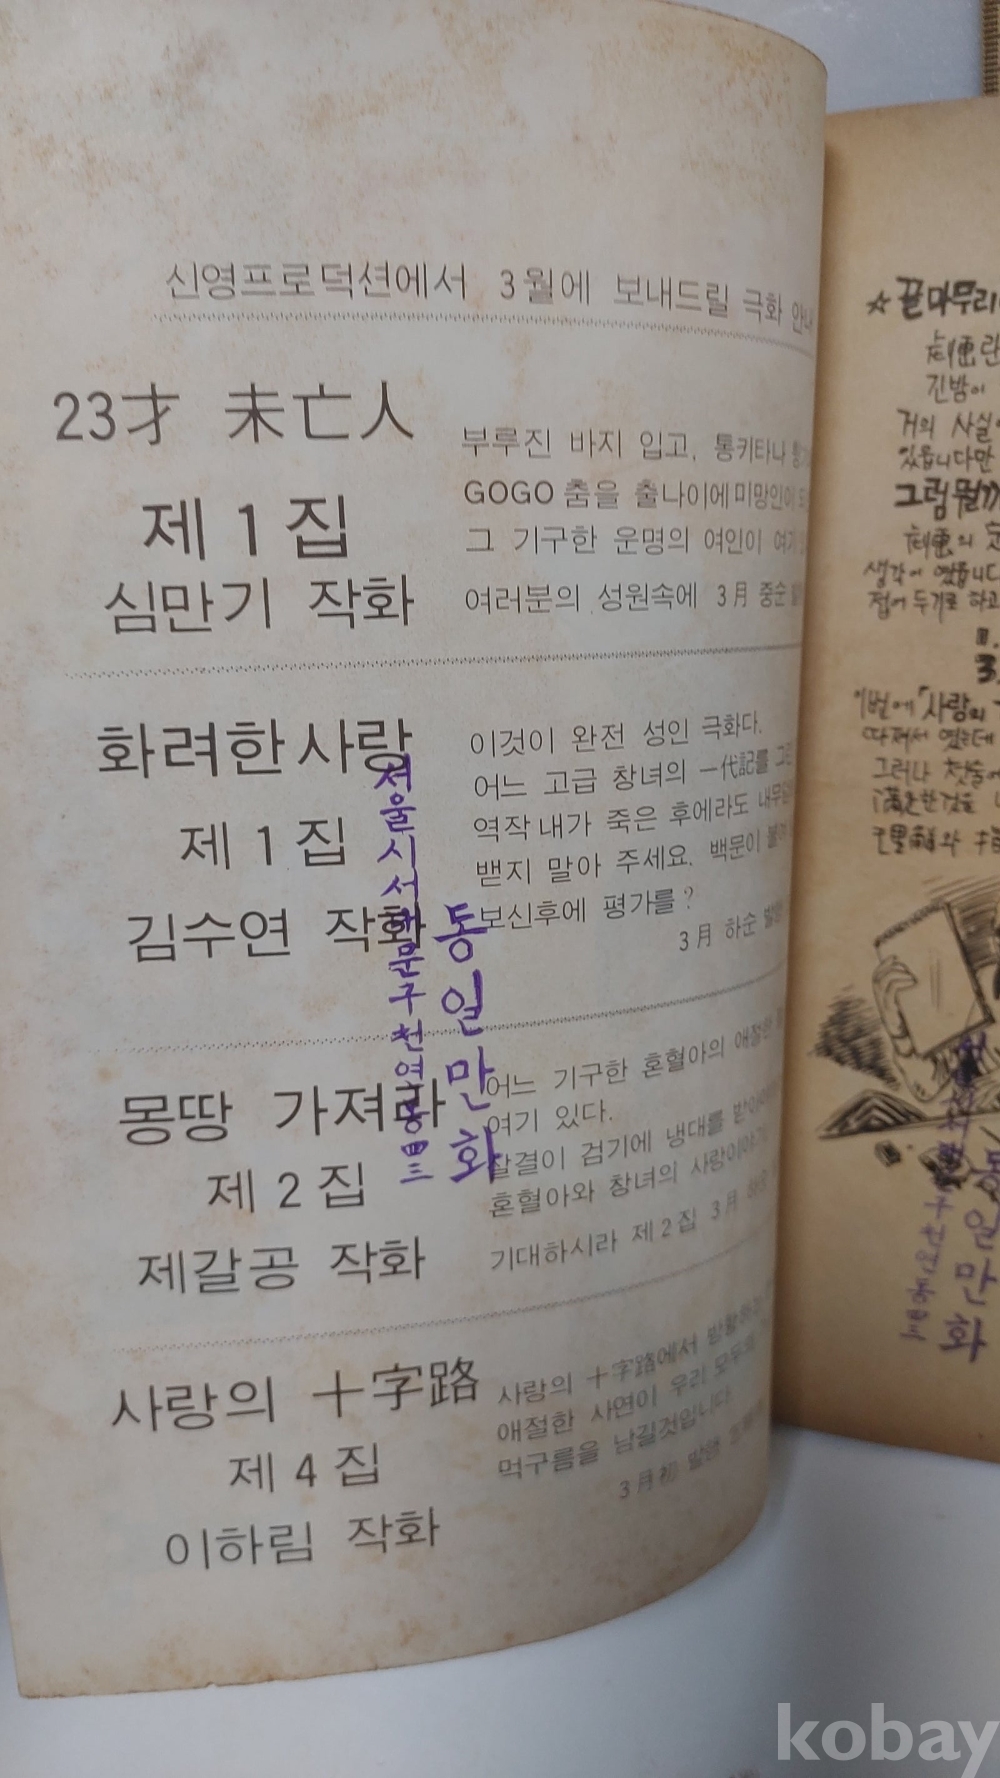 신영프로덕션에서 3월에 보내드릴 극화 안내
23才 未亡人
제 1 집
심만기 작화
부루진 바지 입고, 통키타나
GOGO 춤을 출나이에 미망인이
그 기구한 운명의 여인이 여기
여러분의 성원속에 3月 중순
화려한 사랑
제 1 집
김수연 작화
이것이 완전 성인 극화다.
어느 고급 창녀의 一代記를 그린
역작 내가 죽은 후에라도
뱉지 말아 주세요. 백문이
보신후에 평가를?
3月 하순
몽땅 가져라
제 2 집
제갈공 작화
어느 기구한 혼혈아의 애절한
여기 있다.
살결이 검기에 냉대를
혼혈아와 창녀의 사랑이야기
기대하시라 제 2 집 3月
사랑의 十字路
제 4 집
이하림 작화
사랑의 十字路에서
애절한 사연이 우리
먹구름을 남길것입니다
3月初
서울시서대문구천연동四三
동일만화
☆ 끝마무리
긴밤이
거의 사실
있읍니다만
그럼 뭘까
생각이 였읍니다
접어 두기로 하고
1.
3.
이번에 「사랑의
따져서 였는데
그러나 첫술에
동일만화
kobay